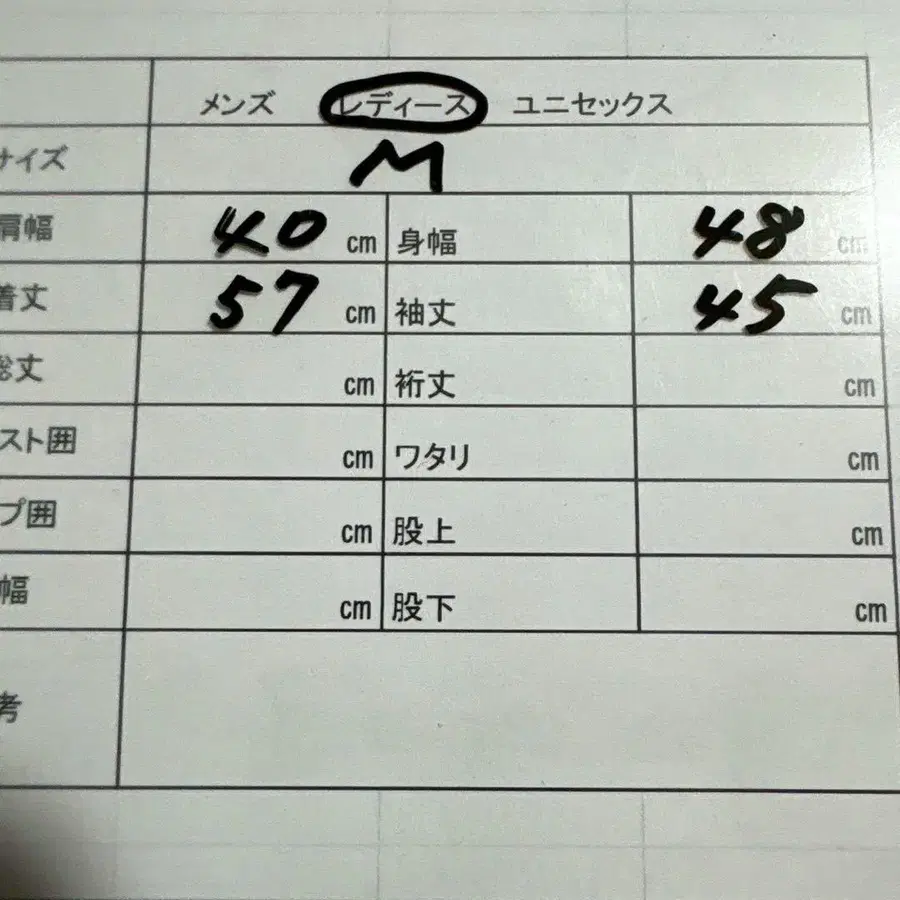 メンズ レディース ユニセックス
サイズ M
肩幅 40 cm 身幅 48 cm
着丈 57 cm 袖丈 45 cm
総丈 cm 裄丈 cm
スト囲 cm ワタリ cm
プ囲 cm 股上 cm
幅 cm 股下 cm
考